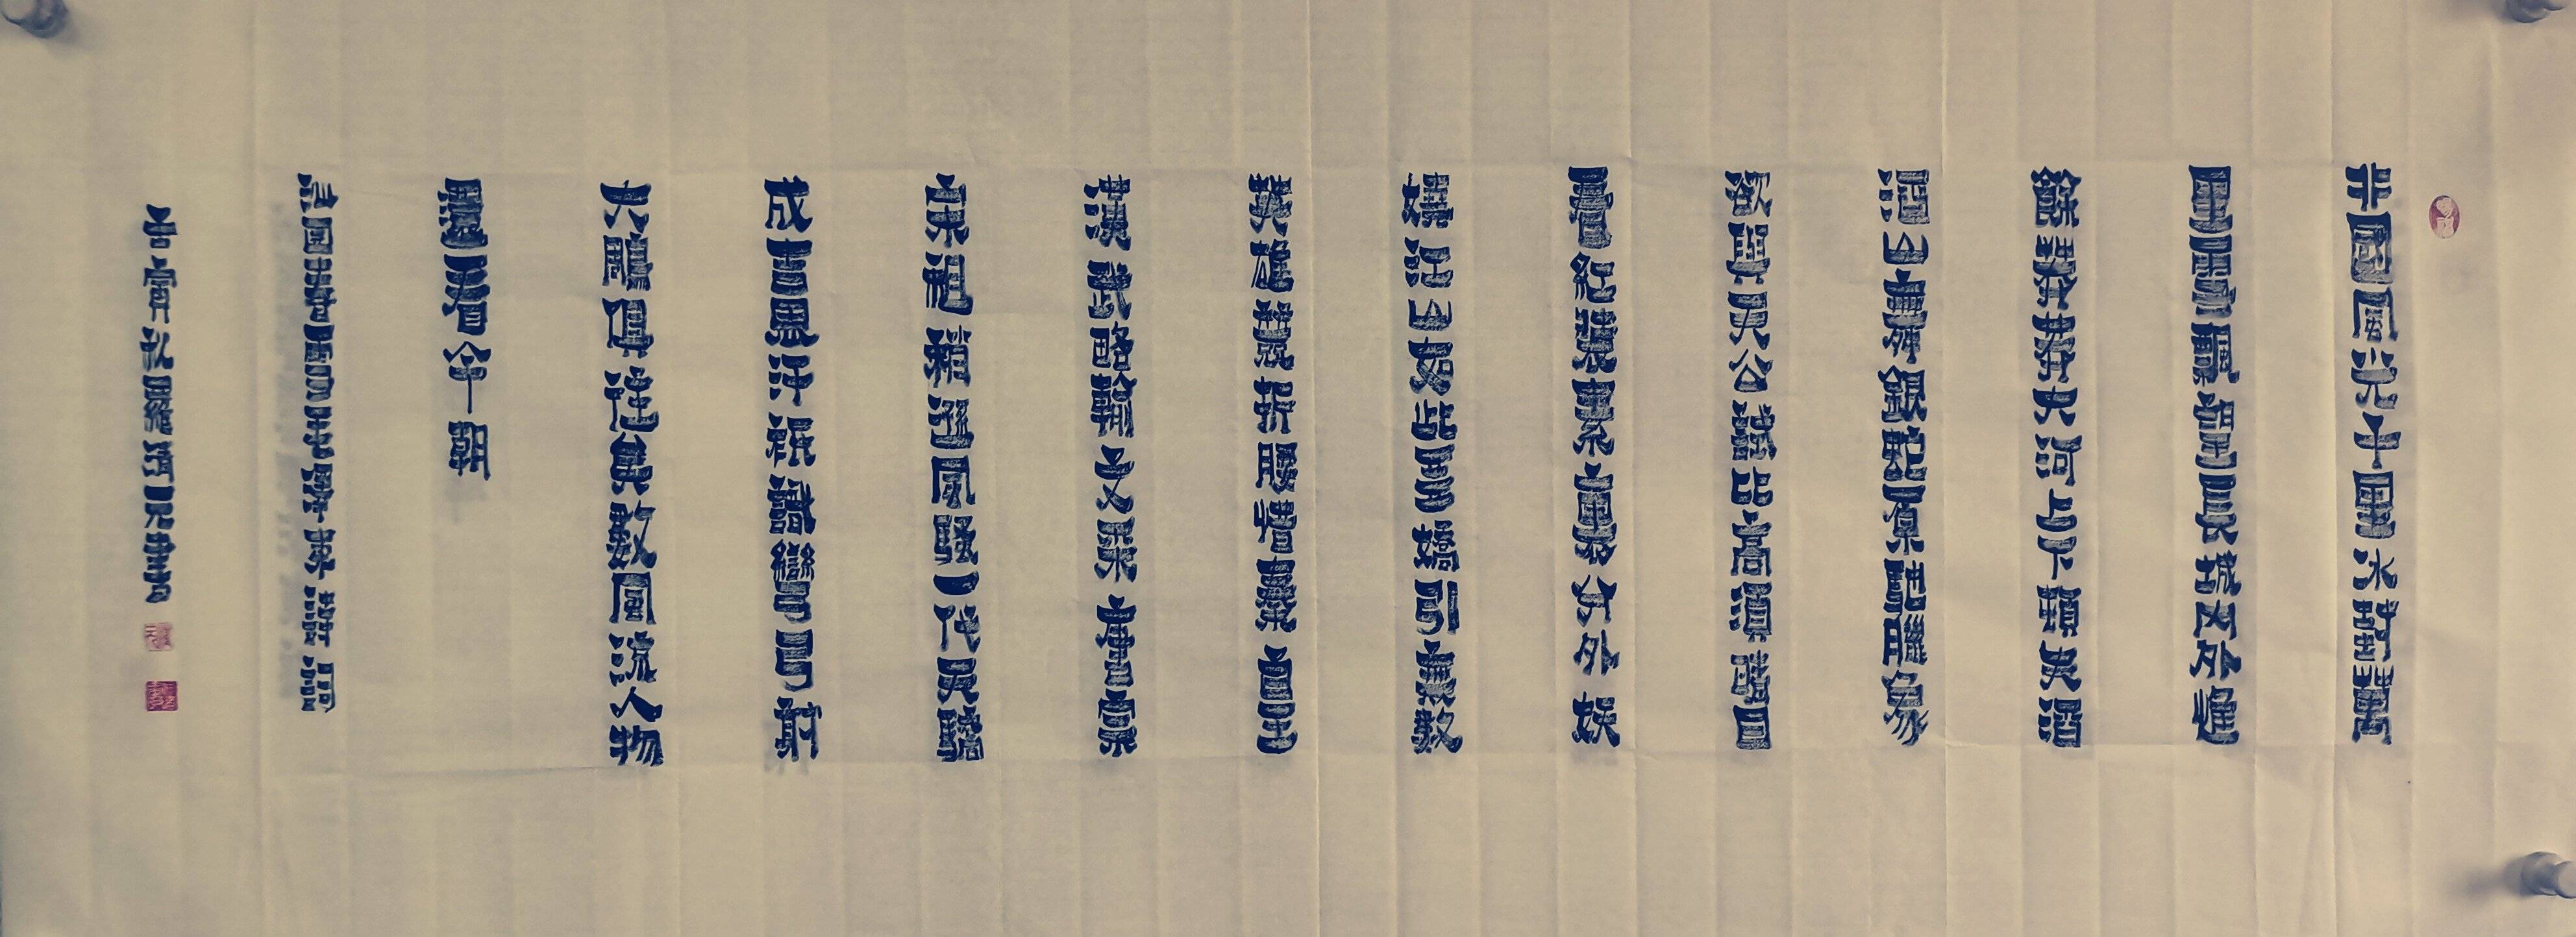 北國風光千里冰封萬
里雪飄望長城內外惟
餘莽莽大河上下頓失滔
滔山舞銀蛇原馳臘象
欲與天公試比高須晴日
看紅裝素裹分外妖
嬈江山如此多嬌引無數
英雄競折腰惜秦皇
漢武略輸文采唐宗
宋祖稍遜風騷一代天驕
成吉思汗祇識彎弓射
大雕俱往矣數風流人物
還看今朝
沁園春雪毛澤東詩詞